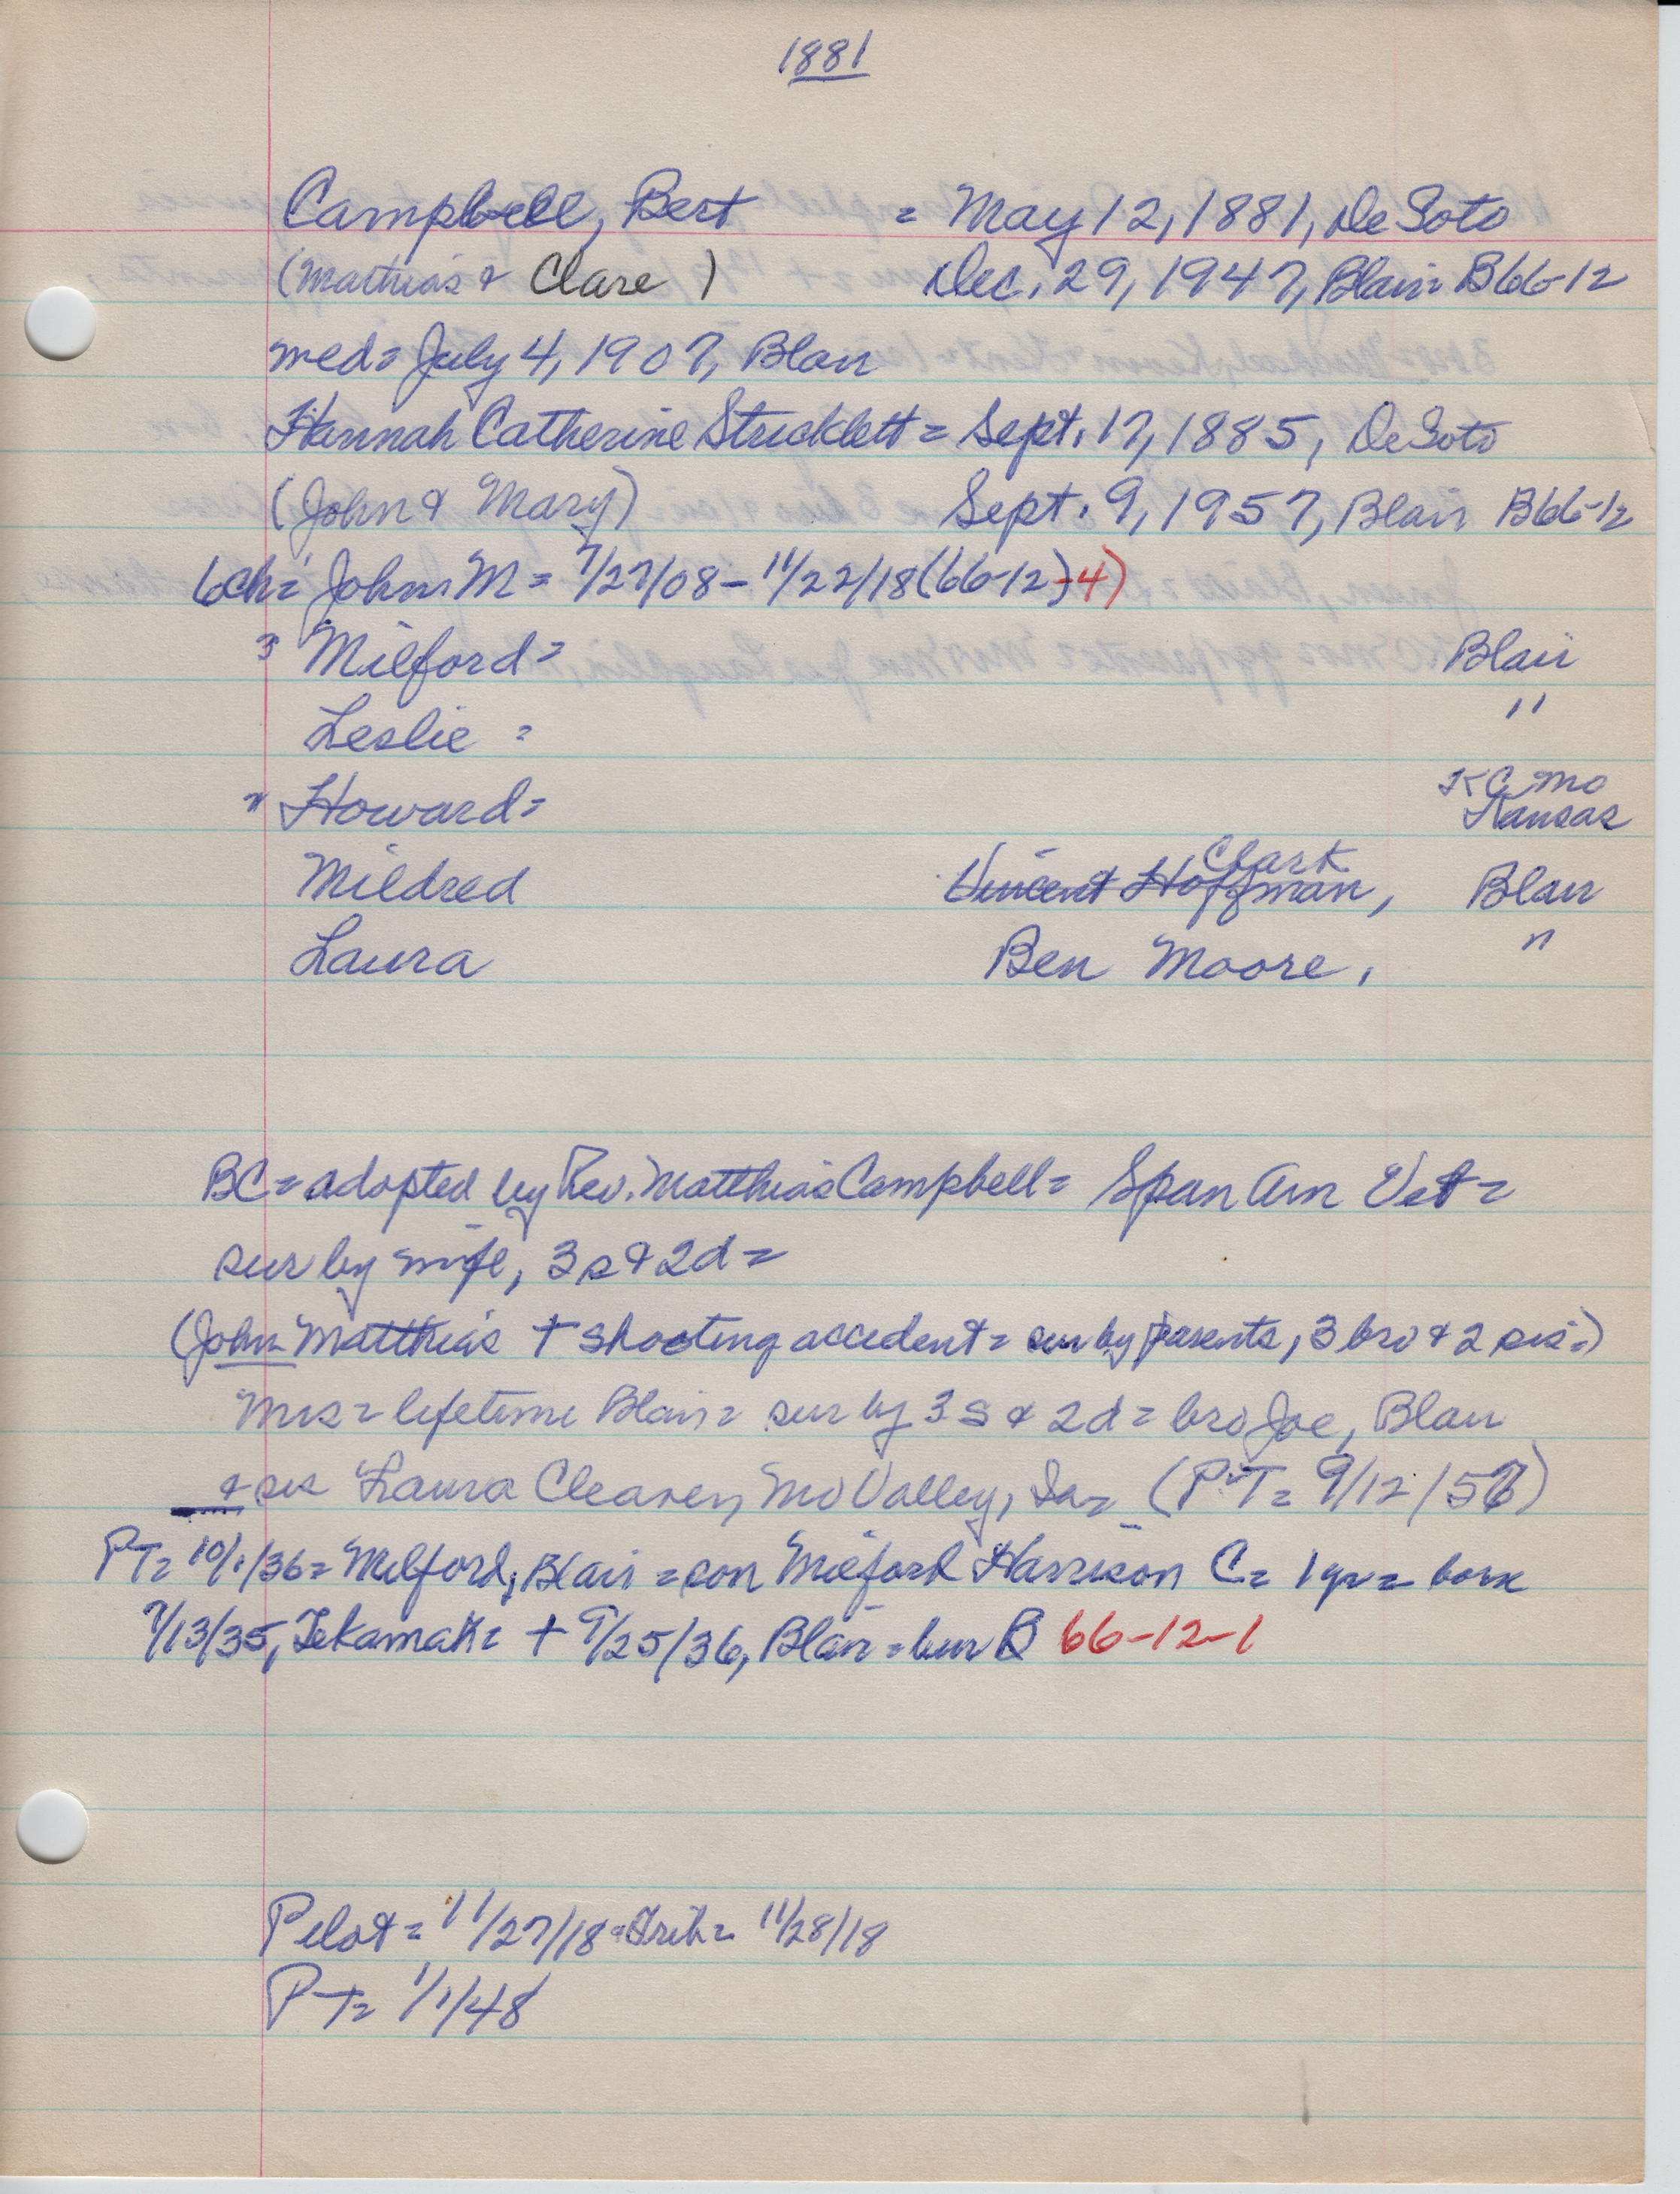 1881
Campbell, Bert = May 12, 1881, De Soto
(Matthias & Clare ) Dec. 29, 1947, Blair= B66-12
med= July 4, 1907, Blair
Hannah Catherine Stricklett = Sept. 17, 1885, DeSoto
(John & Mary) Sept. 9, 1957, Blair B66-12
6ch= John M = 7/27/08 - 11/22/18 (66-12)-4)
3 Milford= Blair
Leslie = "
" Howard= KC Mo
Kansas
Clark
Mildred Vincent Hoffman, Blair
Laura Ben Moore, "
BC= adopted by Rev. Matthias Campbell= Span Am Vet=
sur by wife, 3s & 2d=
(John Matthias + shooting accident= sur by parents, 3 bro & 2 sis=)
Mrs= lifetime Blair= sur by 3s & 2d= bro Joe, Blair
& sis Laura Cleaver, Mo Valley, Ia= (PT= 9/12/57)
PT= 10/1/36= Milford, Blair = son Milford Harrison C= 1 yr= born
7/13/35, Tekamah= + 9/25/36, Blair= bur B 66-12-1
Pilot= 11/27/18= Trib= 11/28/18
PT= 1/1/48